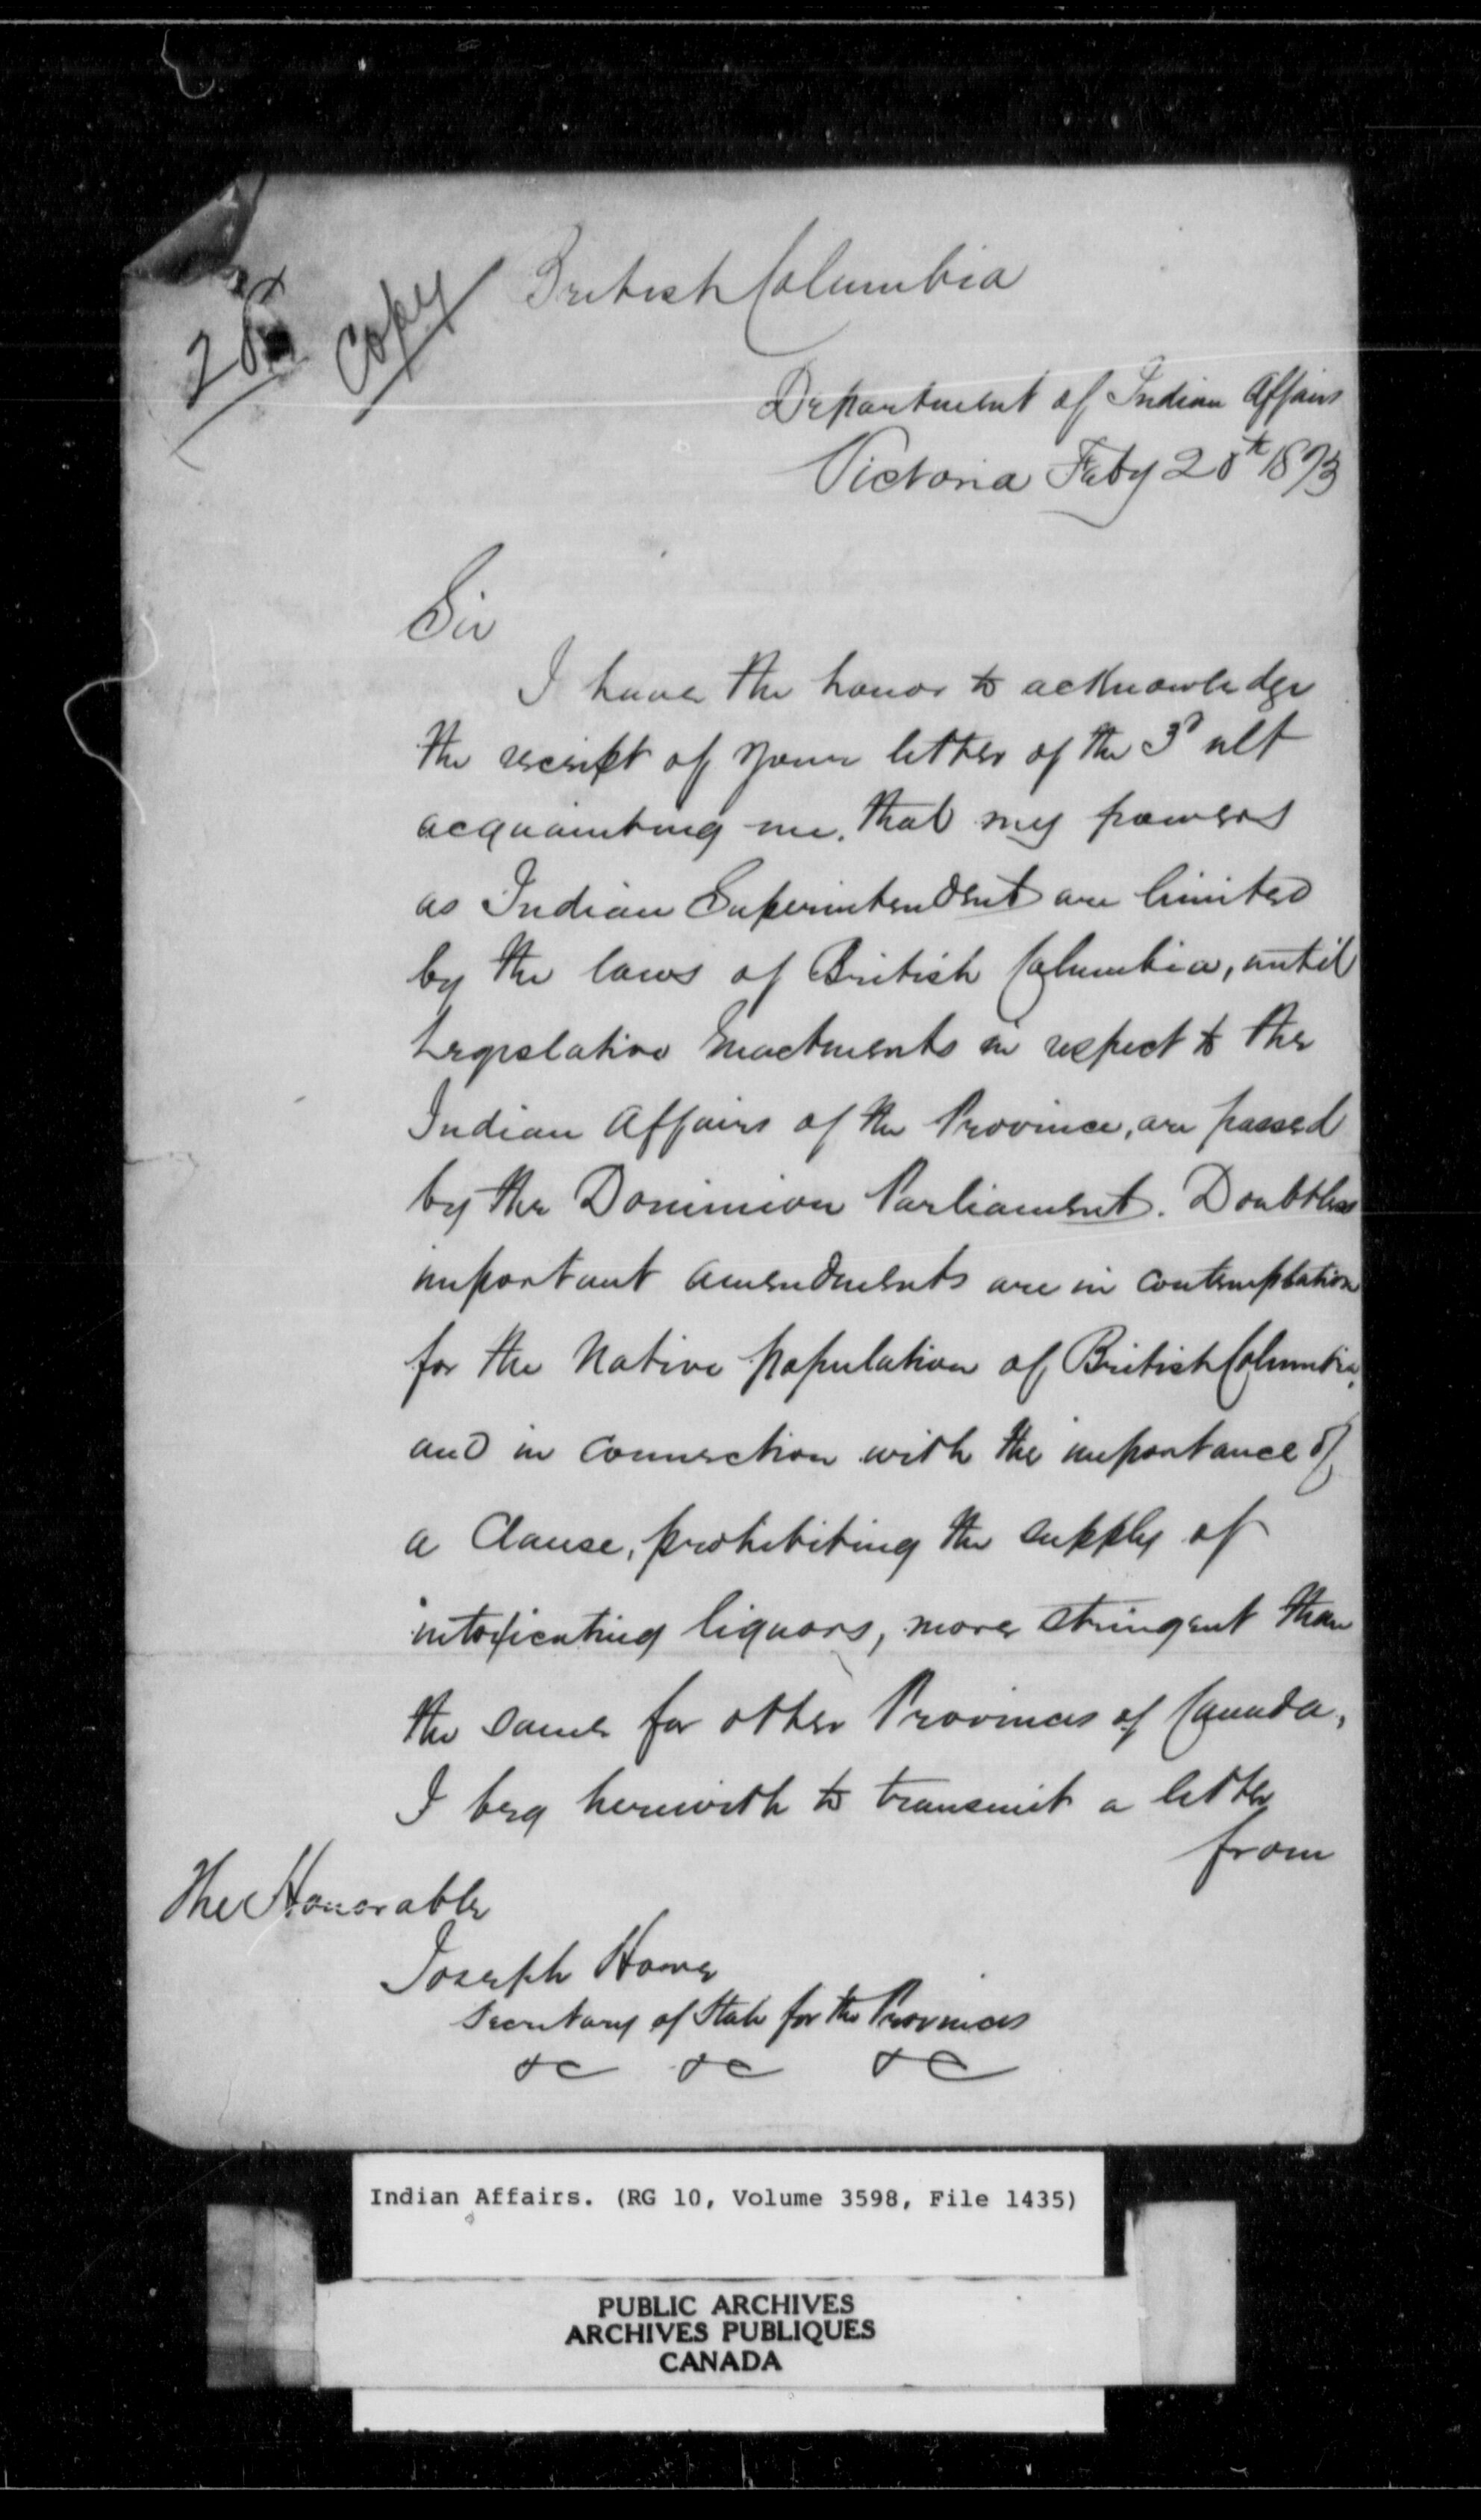 Copy
British Columbia
Department of Indian Affairs
Victoria Feby 28th 1873
Sir
I have the honor to acknowledge
the receipt of your letter of the 3d ult
acquainting me, that my powers
as Indian Superintendent are limited
by the laws of British Columbia, until
Legislative Enactments in respect to the
Indian Affairs of the Province, are passed
by the Dominion Parliament. Doubtless
important amendments are in contemplation
for the Native population of British Columbia,
and in connection with the importance of
a Clause, prohibiting the supply of
intoxicating liquors, more stringent than
the same for other Provinces of Canada,
I beg herewith to transmit a letter
from
The Honorable
Joseph Howe
Secretary of State for the Provinces
&c &c &c
Indian Affairs. (RG 10, Volume 3598, File 1435)
PUBLIC ARCHIVES
ARCHIVES PUBLIQUES
CANADA